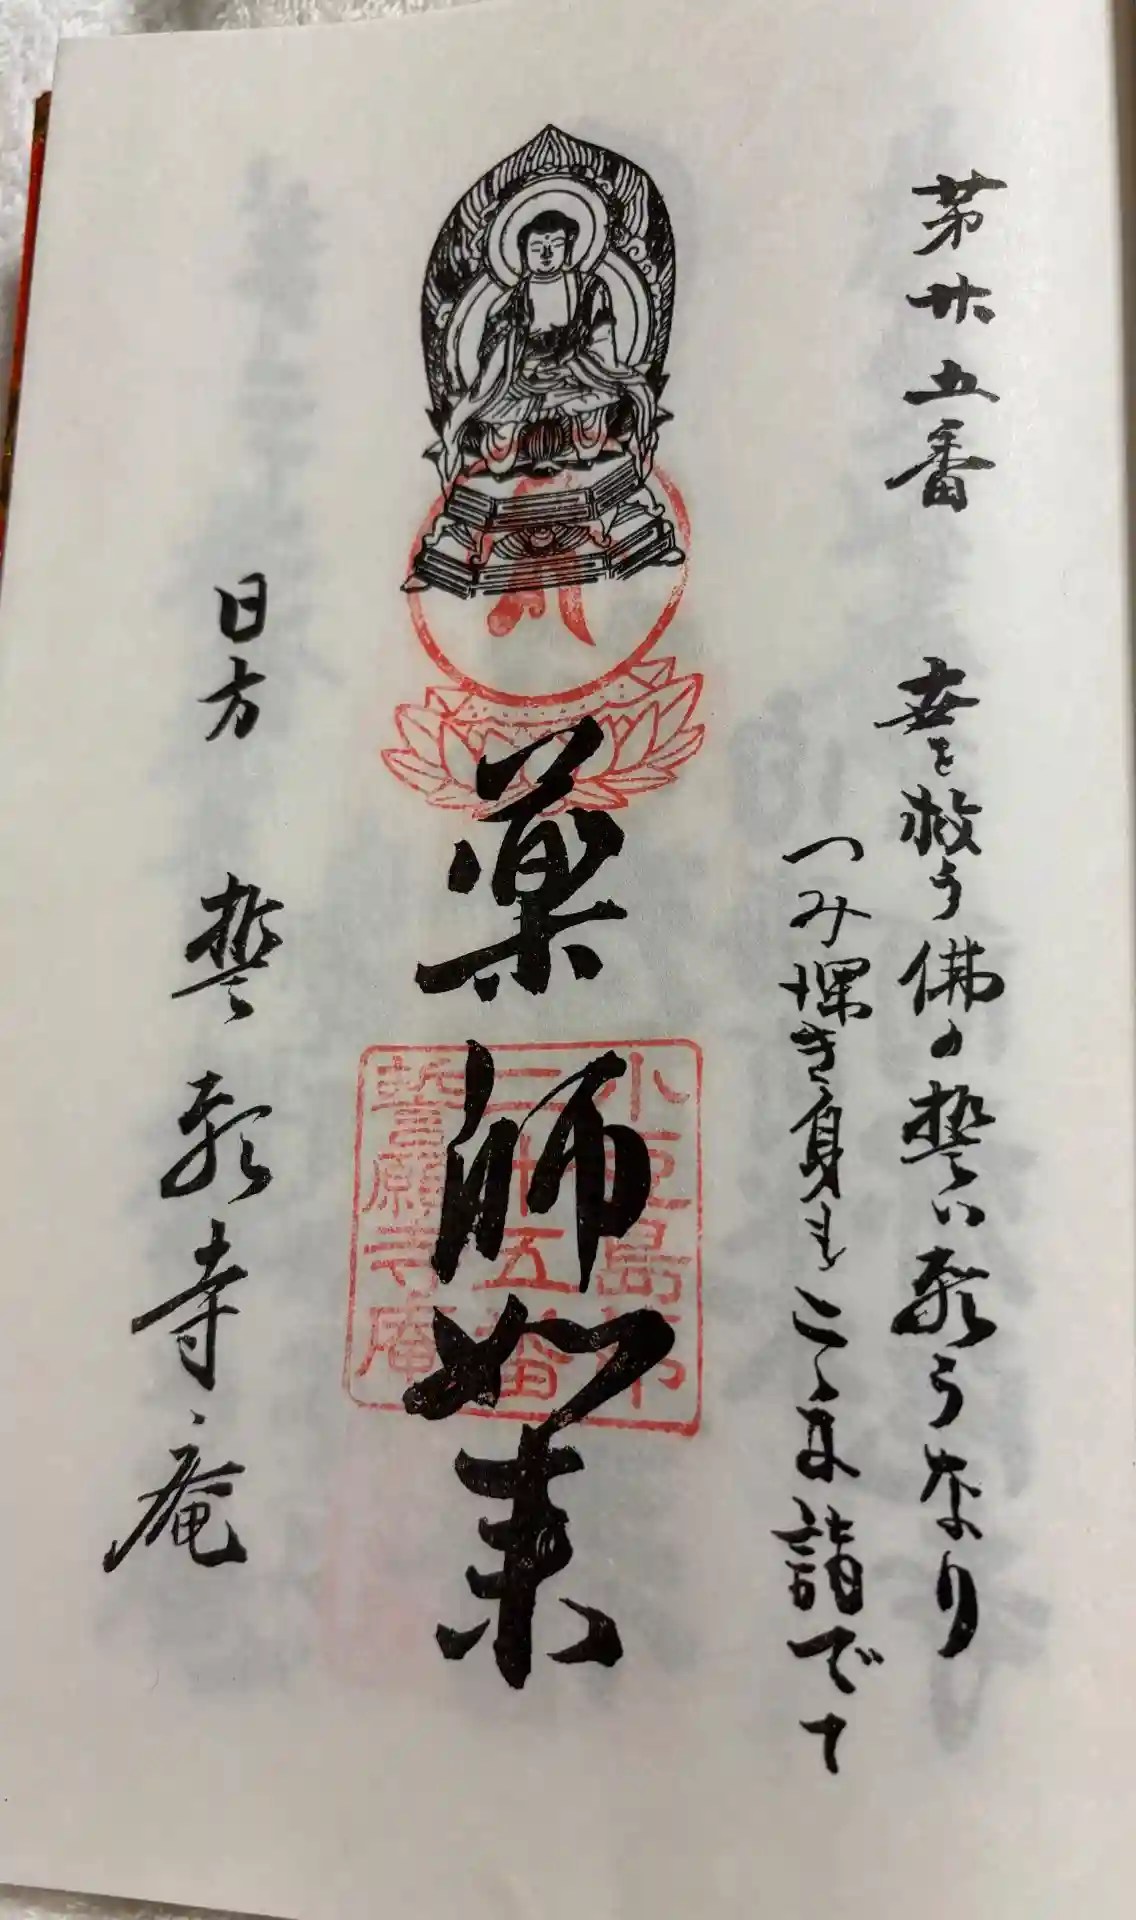 第廿五番　世を救う佛の誓い願うなり
つみ深き身もこゝに詣でて
薬師如来
小豆島
二十五番
誓願寺庵
日方　誓願寺庵